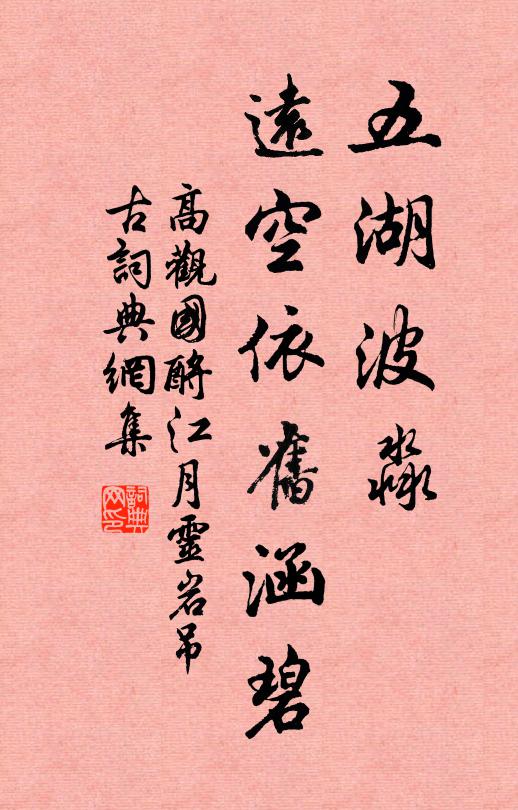 五湖波淼
遠空依舊涵碧
高觀國酹江月靈岩吊
古詞典網集
詞典网印